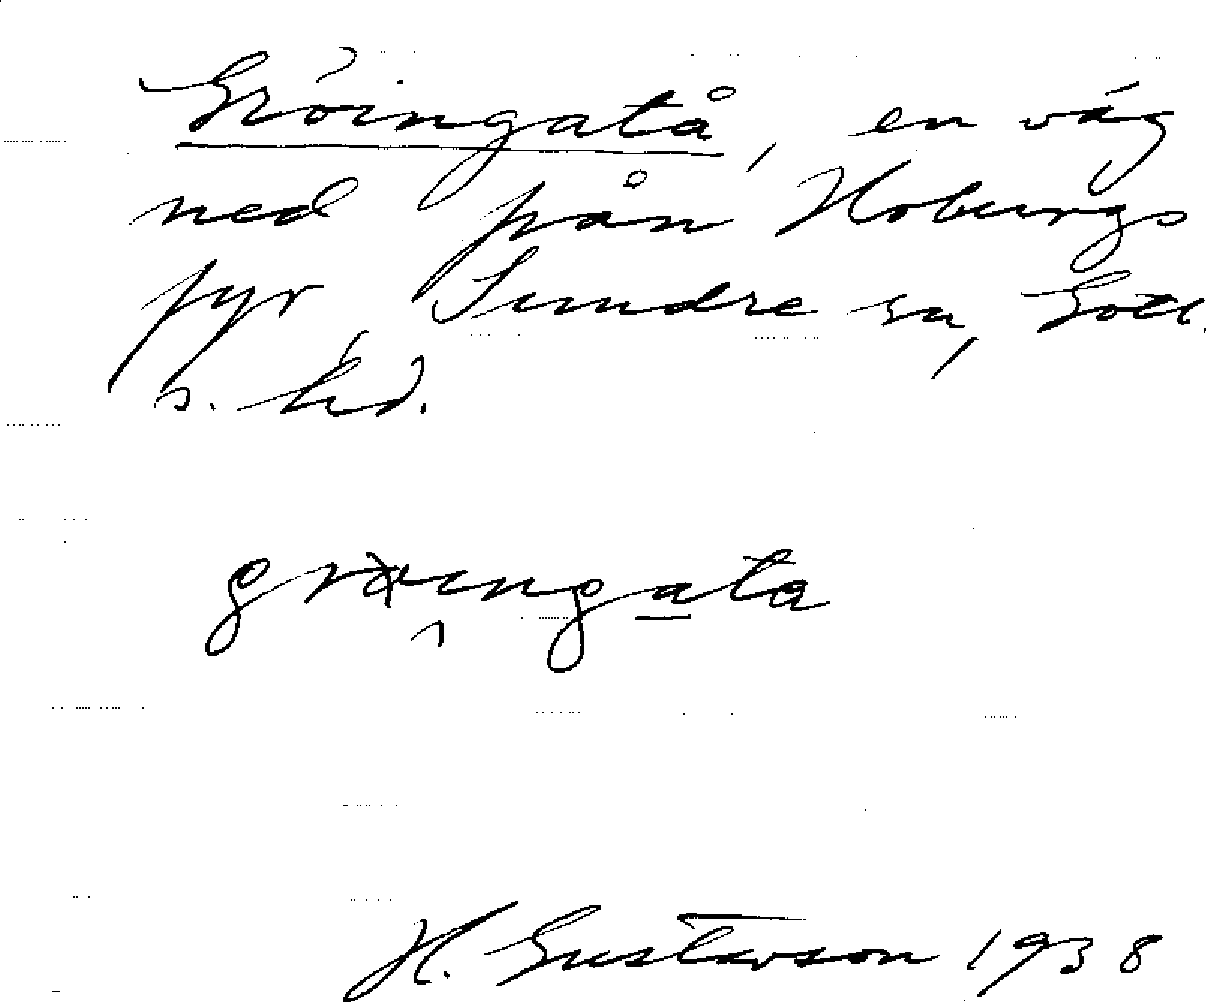 Gróingatå, en väg
ned från Hoburgs
fyr Sundre sn, Gotl.
s. hd.
gröingata
H. Gustavson 1938